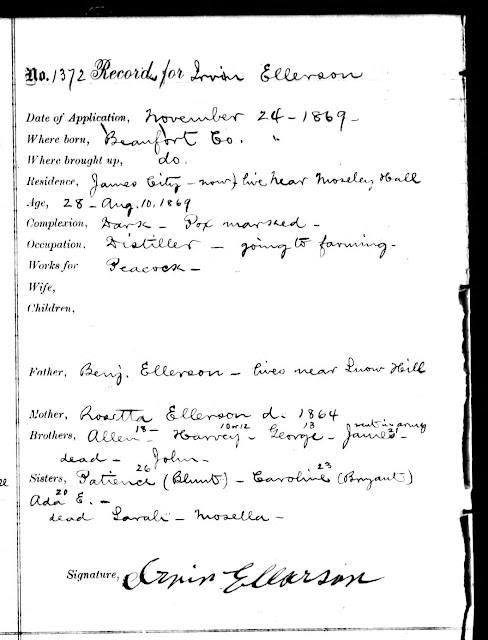 No. 1372 Record for Irvin Ellerson
Date of Application, November 24 - 1869 -
Where born, Beaufort Co. "
Where brought up, do.
Residence, James City - now live near Moseley Hall
Age, 28 - Aug. 10, 1869
Complexion, Dark - Pox marked -
Occupation, Distiller - going to farming -
Works for Peacock -
Wife,
Children,
Father, Benj. Ellerson - lives near Snow Hill
Mother, Rosetta Ellerson d. 1864
Brothers, Allen 18 - Harvey 10 or 12 - George 13 - James 21 in army
dead - John -
Sisters, Patience 26 (Blunt) - Caroline 23 (Bryant)
Ada 20 E. -
dead Sarah - Mosella -
Signature, Irvin Ellerson